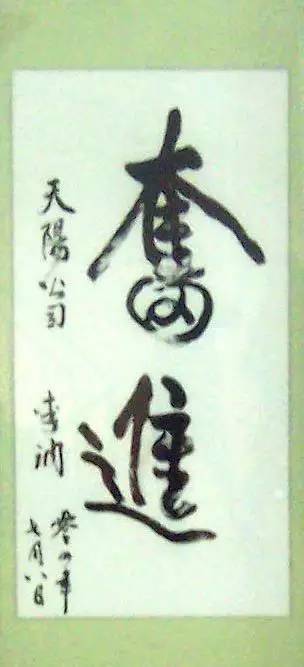 奮進
天陽公司
李訥
零四年
七月八日